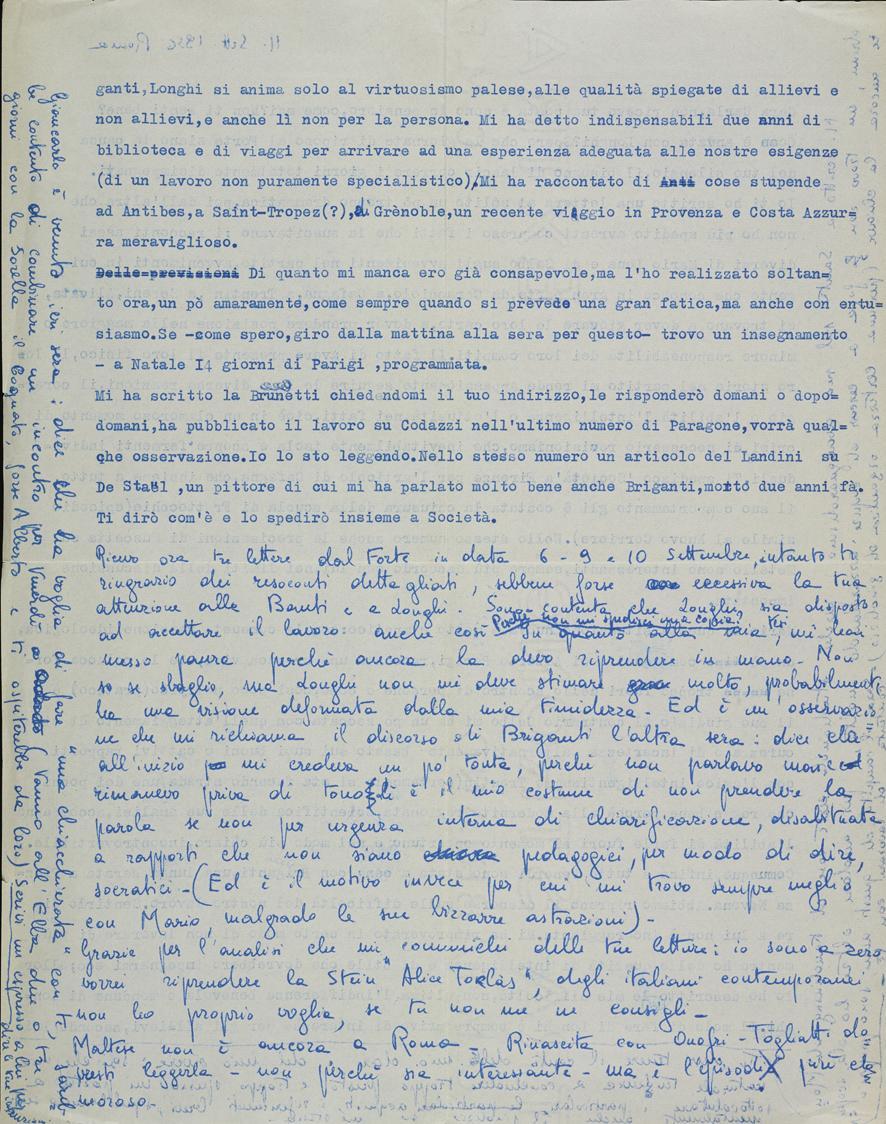 ganti,Longhi si anima solo al virtuosismo palese,alle qualità spiegate di allievi e
non allievi,e anche lì non per la persona. Mi ha detto indispensabili due anni di
biblioteca e di viaggi per arrivare ad una esperienza adeguata alle nostre esigenze
(di un lavoro non puramente specialistico)/Mi ha raccontato di Anti cose stupende
ad Antibes,a Saint-Tropez(?),di Grènoble,un recente viaggio in Provenza e Costa Azzur=
ra meraviglioso.
Delle=previsioni Di quanto mi manca ero già consapevole,ma l'ho realizzato soltan=
to ora,un pò amaramente,come sempre quando si prevede una gran fatica,ma anche con entu=
siasmo.Se -come spero,giro dalla mattina alla sera per questo- trovo un insegnamento
- a Natale I4 giorni di Parigi ,programmata.
Mi ha scritto la Brunetti chiedendomi il tuo indirizzo,le risponderò domani o dopo=
domani,ha pubblicato il lavoro su Codazzi nell'ultimo numero di Paragone,vorrà qual=
che osservazione.Io lo sto leggendo.Nello stesso numero un articolo del Landini su
De Staël ,un pittore di cui mi ha parlato molto bene anche Briganti,morto due anni fà.
Ti dirò com'è e lo spedirò insieme a Società.
Ricevo ora tre lettere dal Forte in data 6 - 9 e 10 Settembre, intanto ti
ringrazio dei resoconti dettagliati, sebbene forse eccessiva la tua
attenzione alla Banti e a Longhi. Sono contenta che Longhi sia disposto
ad accettare il lavoro: anche così Perché non mi spedisci una copia? In quanto alla mia tesi, mi hai
messo paura perché ancora la devo riprendere in mano - Non
so se sbaglio, ma Longhi non mi deve stimare molto, probabilmente
ha una visione deformata dalla mia timidezza - Ed è un'osservazio
ne che mi richiama il discorso di Briganti l'altra sera: dice che
all'inizio mi credeva un po' tonta, perché non parlavo mai, e
rimanevo priva di tono: è il mio costume di non prendere la
parola se non per urgenza interna di chiarificazione, disabituata
a rapporti che non siano pedagogici, per modo di dire,
socratici - (Ed è il motivo invece per cui mi trovo sempre meglio
con Mario, malgrado le sue bizzarre astrazioni) -
Grazie per l'analisi che mi comunichi delle tue letture: io sono a zero -
vorrei riprendere la Stein "Alice Toclas", degli italiani contemporanei
non ho proprio voglia, se tu non me ne consigli -
Maltese non è ancora a Roma - Rinascita con Onofri - Togliatti do
vresti leggerla - non perché sia interessante - ma è l'episodio più cla
moroso -
Giancarlo è venuto ieri sera: dice che ha voglia di fare "una chiacchierata" con te, sareb
be contento di combinare un incontro per Venerdì o Sabato (Vanno all'Elba due o tre
giorni con la Sorella il Cognato, forse Alberto e ti ospiterebbe da loro) Scrivi un espresso a lui per
dirle tue intenzioni
11 Sett 1956 Roma